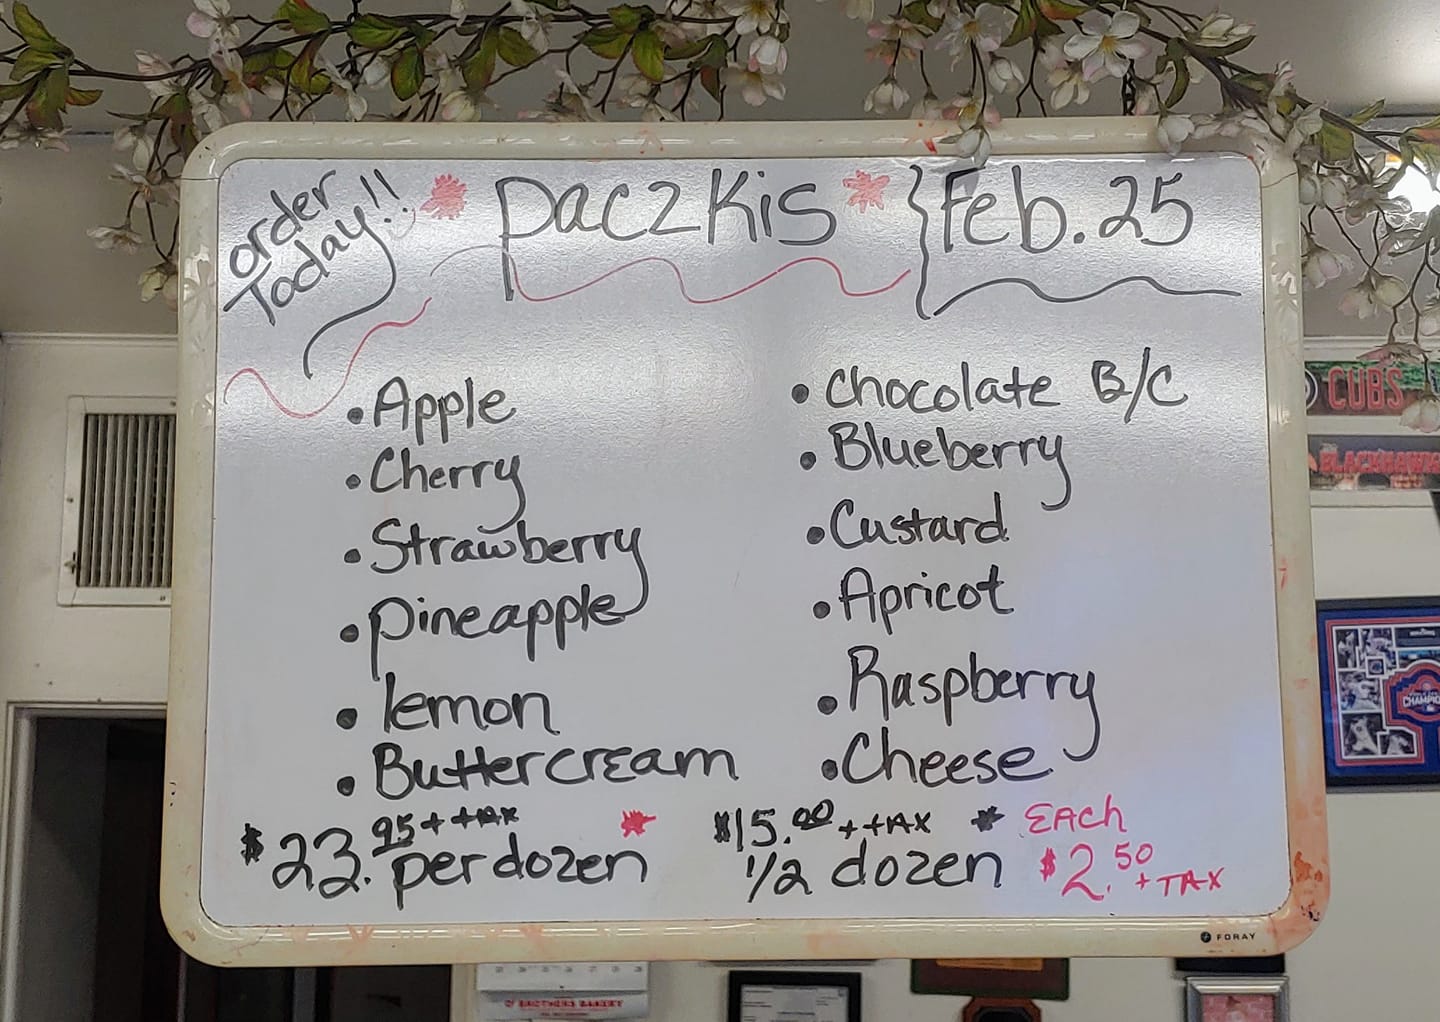 order
Today!!
Paczkis
Feb. 25
• Apple
• Cherry
• Strawberry
• Pineapple
• lemon
• Buttercream
• Chocolate B/C
• Blueberry
• Custard
• Apricot
• Raspberry
• Cheese
$23.95 + tax
per dozen
$15.00 + tax
1/2 dozen
Each
$2.50
+ TAX
FORAY
CUBS
BLACKHAWKS
CHAMPIO
BROTHERS BAKERY